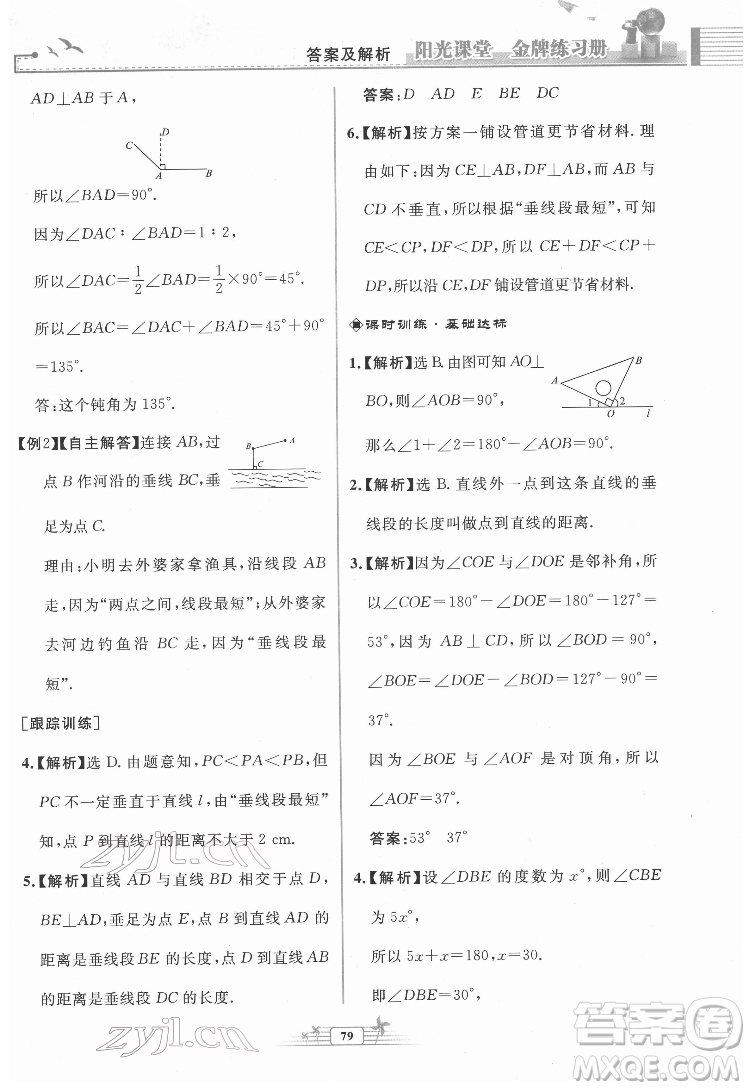 答案及解析 阳光课堂 金牌练习册
AD⊥AB于A，
D
C
A
B
所以∠BAD=90°.
因为∠DAC∶∠BAD=1∶2，
所以∠DAC=1/2∠BAD=1/2×90°=45°.
所以∠BAC=∠DAC+∠BAD=45°+90°
=135°.
答:这个钝角为135°.
【例2】【自主解答】连接AB,过
点B作河沿的垂线BC,垂
足为点C.
B
A
C
理由:小明去外婆家拿渔具,沿线段AB
走,因为“两点之间,线段最短”;从外婆家
去河边钓鱼沿BC走,因为“垂线段最
短”.
[跟踪训练]
4.【解析】选D.由题意知,PC<PA<PB,但
PC不一定垂直于直线l,由“垂线段最短”
知,点P到直线l的距离不大于2 cm.
5.【解析】直线AD与直线BD相交于点D,
BE⊥AD,垂足为点E,点B到直线AD的
距离是垂线段BE的长度,点D到直线AB
的距离是垂线段DC的长度.
答案:D AD E BE DC
6.【解析】按方案一铺设管道更节省材料.理
由如下:因为CE⊥AB,DF⊥AB,而AB与
CD不垂直,所以根据“垂线段最短”,可知
CE<CP,DF<DP,所以CE+DF<CP+
DP,所以沿CE,DF铺设管道更节省材料.
课时训练·基础达标
1.【解析】选B.由图可知AO⊥
BO,则∠AOB=90°,
那么∠1+∠2=180°-∠AOB=90°.
B
A
1
2
O
l
2.【解析】选B.直线外一点到这条直线的垂
线段的长度叫做点到直线的距离.
3.【解析】因为∠COE与∠DOE是邻补角,所
以∠COE=180°-∠DOE=180°-127°=
53°,因为AB⊥CD,所以∠BOD=90°,
∠BOE=∠DOE-∠BOD=127°-90°=
37°.
因为∠BOE与∠AOF是对顶角,所以
∠AOF=37°.
答案:53° 37°
4.【解析】设∠DBE的度数为x°,∠CBE
为5x°,
所以5x+x=180,x=30.
即∠DBE=30°,
79
zyjl.cn
zyjl.cn
答案圈
MXQE.COM